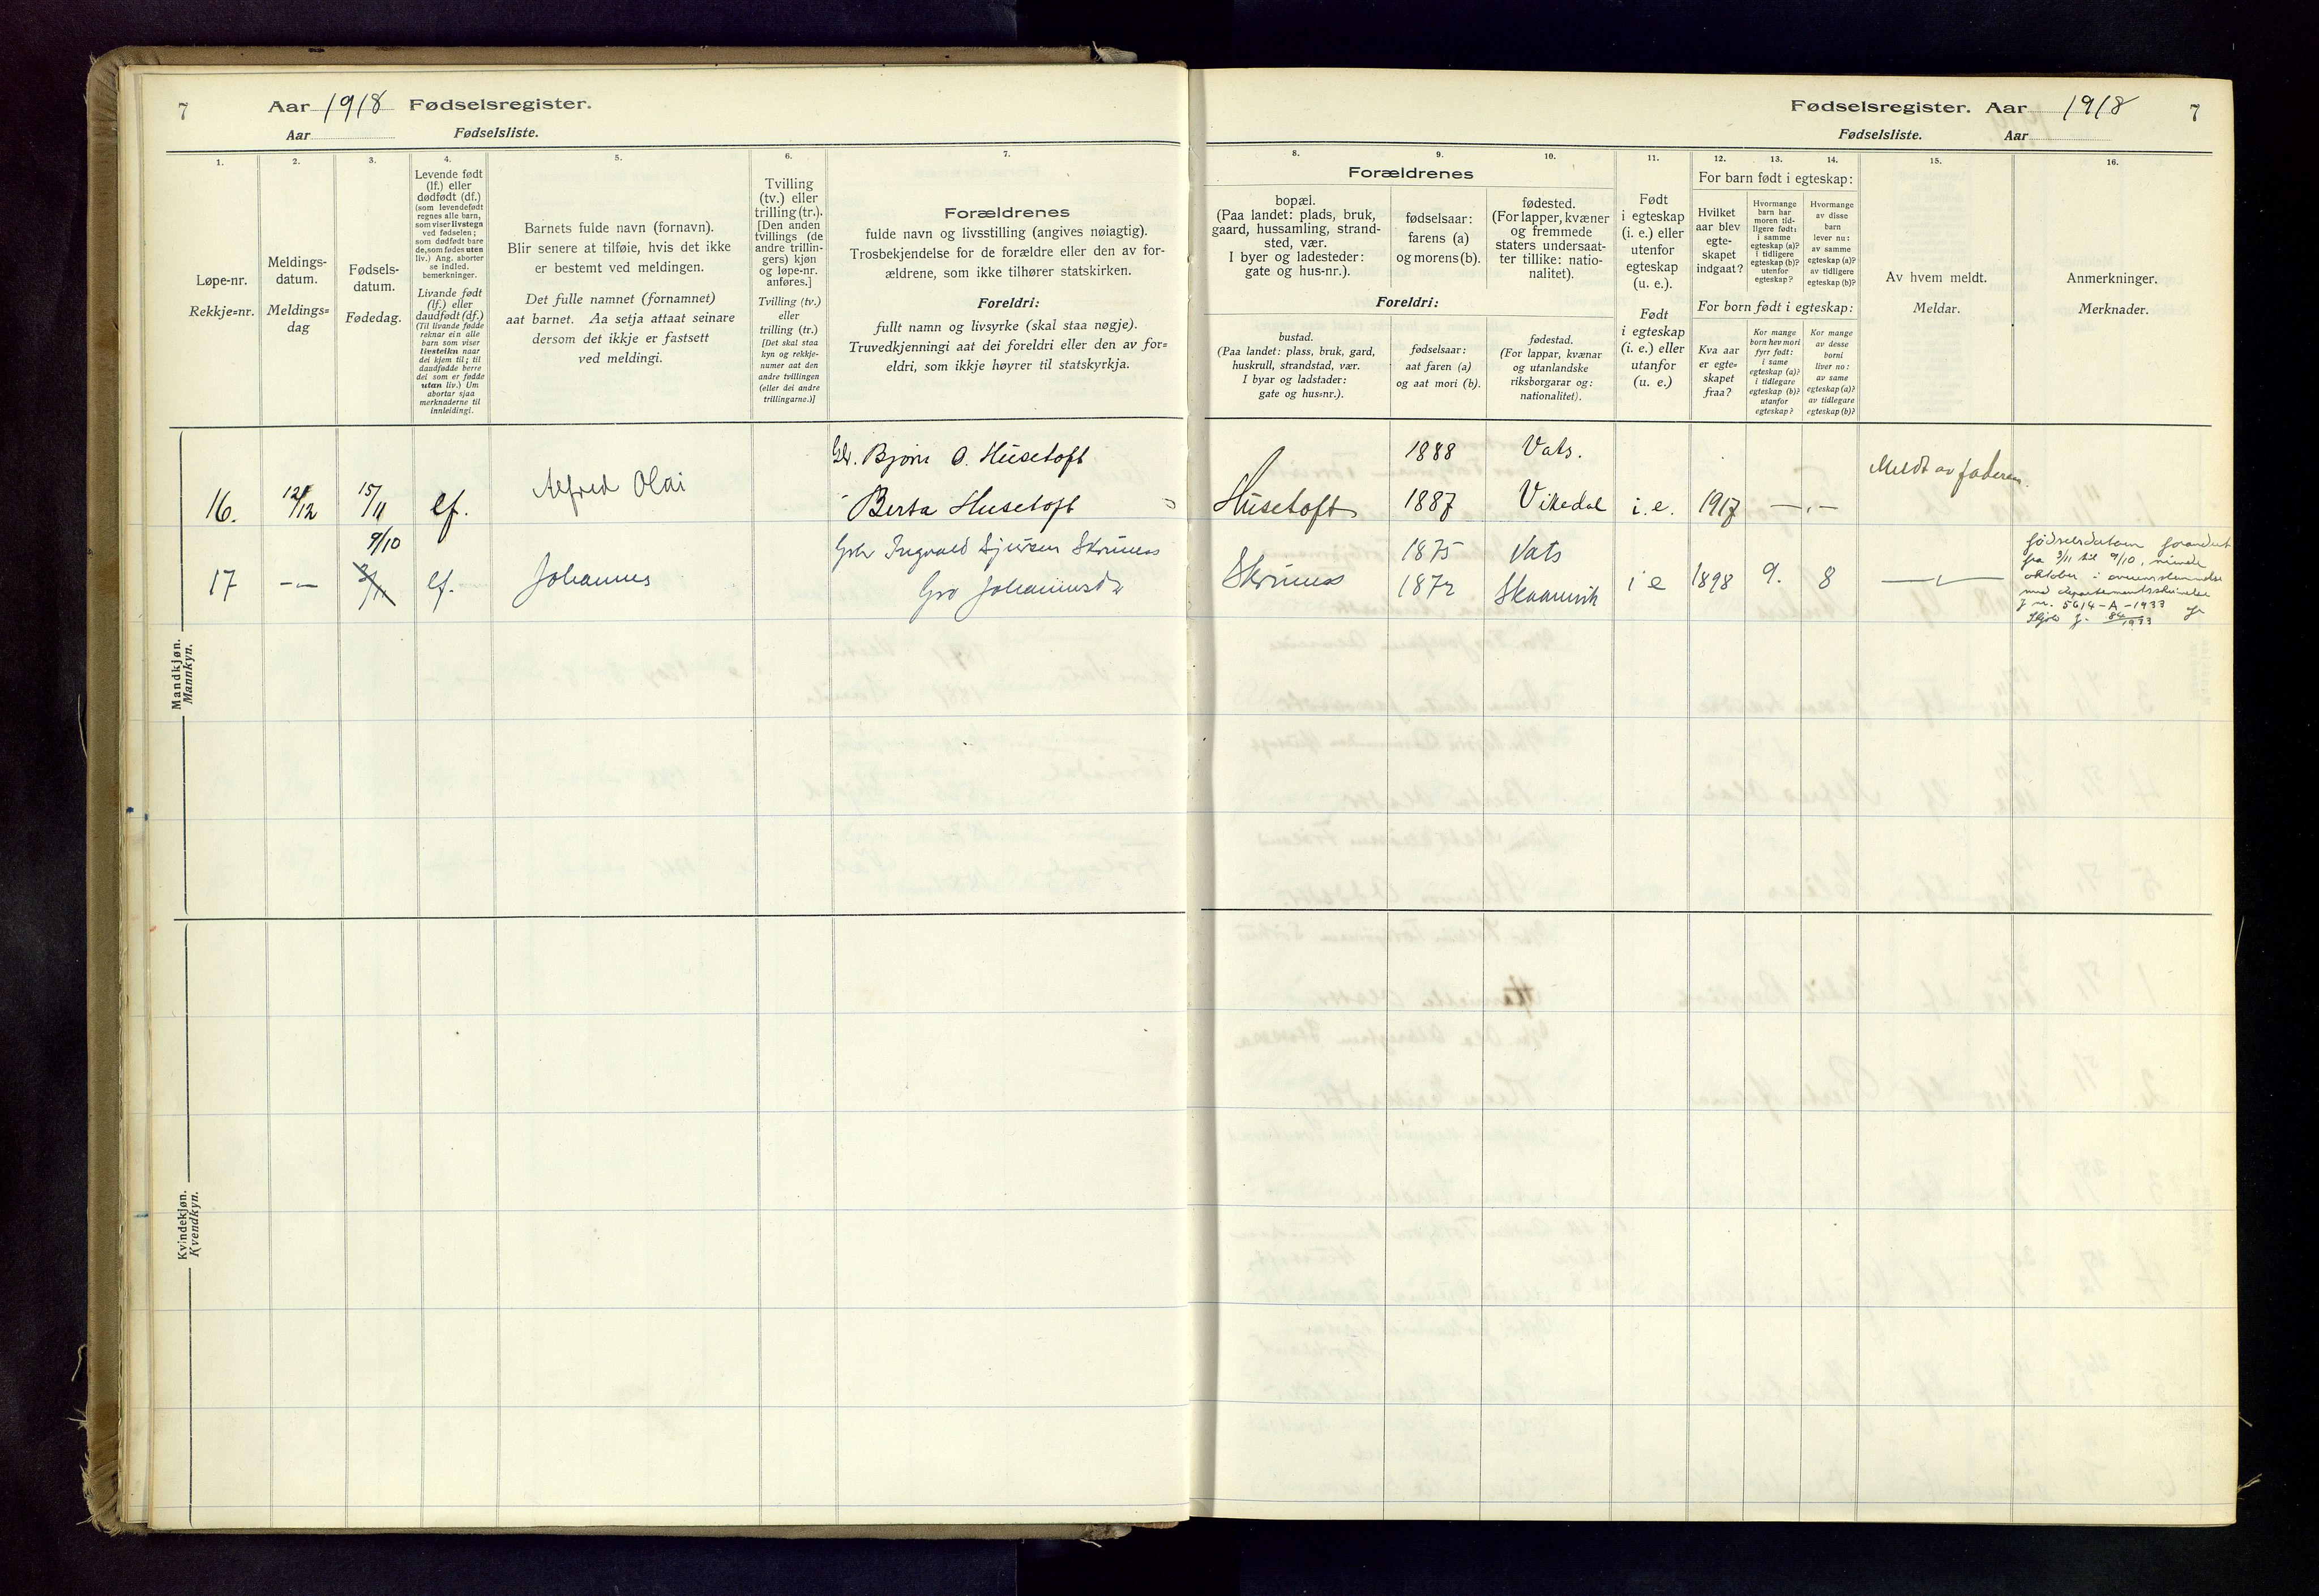 7
Aar 1918 Fødselsregister.
Aar Fødselsliste.
1.
Løpe-nr.
Rekkje=nr.
2.
Meldings-
datum.
Meldings=
dag
3.
Fødsels-
datum.
Fødedag.
4.
Levende født
(lf.) eller
dødfødt (df.)
(som levendefødt
regnes alle barn,
som viser livstegn
ved fødselen;
som dødfødt bare
de, som fødes uten
liv.) Ang. aborter
se indled.
bemerkninger.
Livande født
(lf.) eller
daudfødt (df.)
(Til livande fødde
reknar ein alle
barn som viser
livsteikn naar
dei kjem til; til
daudfødde berre
dei som er fødde
utan liv.) Um
abortar sjaa
merknaderne til
innleiding!.
5.
Barnets fulde navn (fornavn).
Blir senere at tilføie, hvis det ikke
er bestemt ved meldingen.
Det fulle namnet (fornamnet)
aat barnet. Aa setja attaat seinare
dersom det ikkje er fastsett
ved meldingi.
6.
Tvilling
(tv.) eller
trilling (tr.).
[Den anden
tvillings (de
andre trillin-
gers) kjøn
og løpe-nr.
anføres.]
Tvilling (tv.)
eller
trilling (tr.)
[Det skal staa
kyn og rekkje-
numer aat den
andre tvillingen
(eller dei andre
trillingarne.)]
7.
Forældrenes
fulde navn og livsstilling (angives nøiagtig).
Trosbekjendelse for de forældre eller den av for-
ældrene, som ikke tilhører statskirken.
Foreldri:
fullt namn og livsyrke (skal staa nøgje).
Truvedkjenningi aat dei foreldri eller den av for=
eldri, som ikkje høyrer til statskyrkja.
Mandkjøn.
Mannkyn.
16. 12/12 15/11 lf. Alfred Olai Gbr. Bjørn O. Husetoft
Berta Husetoft
17 -"- 3/11 9/10 lf. Johannes Gbr Ingvald Sjursen Skrimess
Gro Johannesdr
Kvindekjøn.
Kvendkyn.
Fødselsregister. Aar 1918 7
Fødselsliste. Aar
8.
Forældrenes
bopæl.
(Paa landet: plads, bruk,
gaard, hussamling, strand-
sted, vær.
I byer og ladesteder:
gate og hus-nr.).
9.
fødselsaar:
farens (a)
og morens (b).
10.
fødested.
(For lapper, kvæner
og fremmede
staters undersaat-
ter tillike: natio-
nalitet).
Foreldri:
bustad.
(Paa landet: plass, bruk, gard,
huskrull, strandstad, vær.
I byar og ladstader:
gate og hus=nr.).
fødselsaar:
aat faren (a)
og aat mori (b).
fødestad.
(For lappar, kvænar
og utanlandske
riksborgarar og:
nationalitet).
11.
Født
i egteskap
(i. e.) eller
utenfor
egteskap
(u. e.).
Født
i egteskap
(i. e.) eller
utanfor
(u. e.)
12. 13. 14.
For barn født i egteskap:
Hvilket
aar blev
egte-
skapet
indgaat?
Hvormange
barn har
moren tid-
ligere født:
i samme
egteskap (a)?
i tidligere
egteskap (b)?
utenfor
egteskap?
Hvormange
av disse
barn
lever nu:
av samme
egteskap (a)?
av tidligere
egteskap (b)?
For born født i egteskap:
Kva aar
er egte=
skapet
fraa?
Kor mange
born hev mori
fyrr født:
i same
egteskap (a)?
i tidlegare
egteskap (b)?
utanfor
egteskap?
Kor mange
av desse
borni
liver no:
av same
egteskap (a)?
av tidlegare
egteskap (b)?
15.
Av hvem meldt.
Meldar.
16.
Anmerkninger.
Merknader.
Husetoft 1888 Vats.
1887 Vikedal i.e. 1917 -"- Meldt av faderen.
1875 Vats
1872 Skaanevik i e 1898 9. 8 -"-
fødselsdatum forandret
fra 3/11 til 9/10, niende
oktober i overensstemmelse
med departementsskrivelse
j. nr. 5614-A-1933
Skjold j. 84/1933